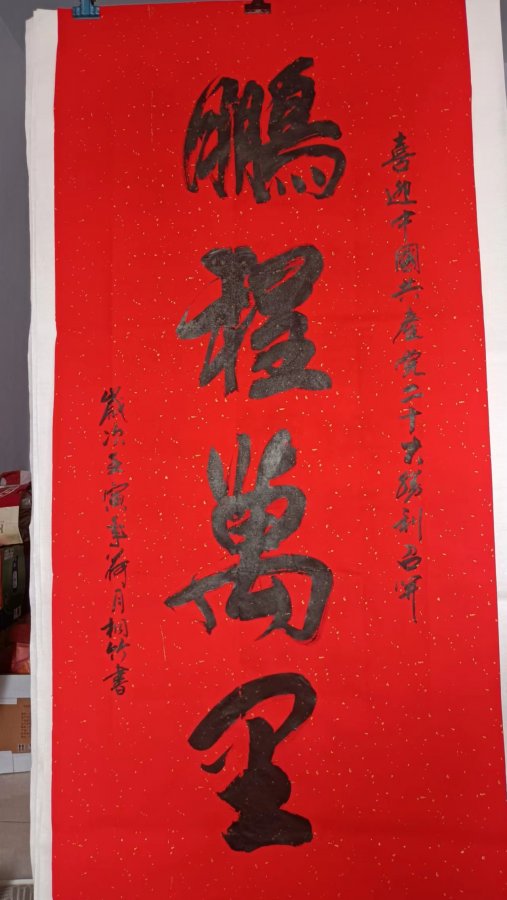 喜迎中國共產党二十大勝利召開
鵬程萬里
歲次壬寅年荷月桐竹書